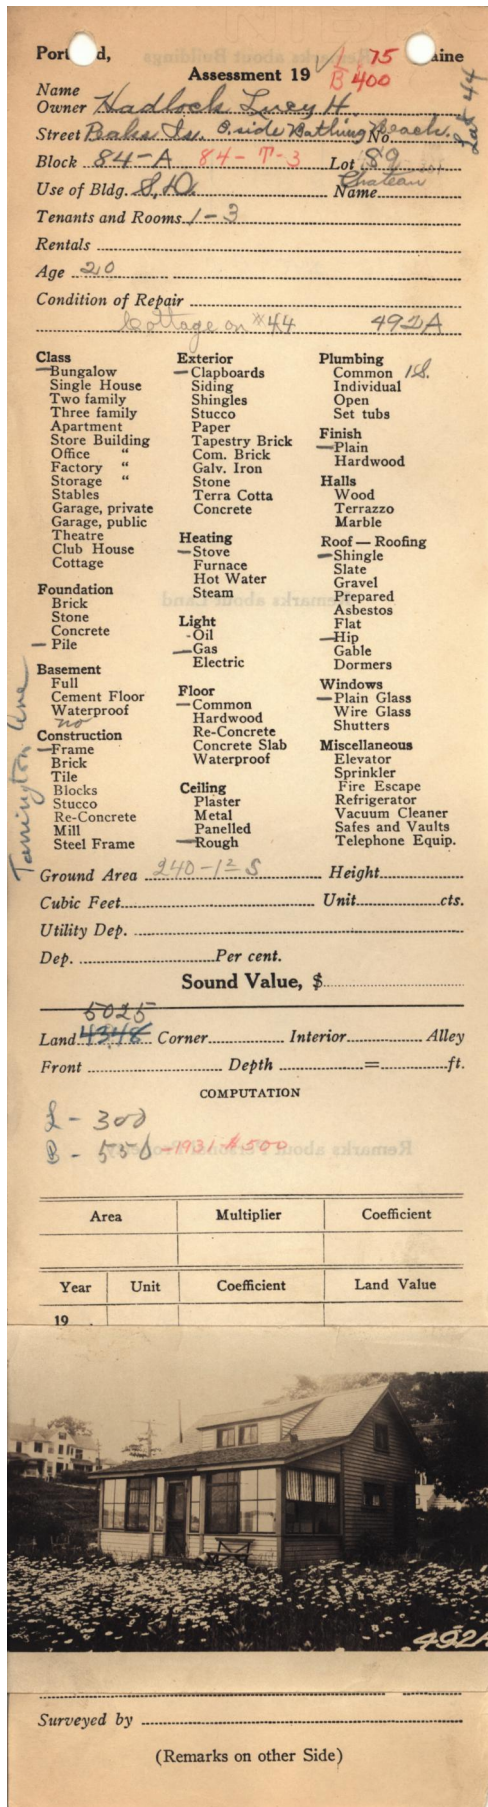 Portland, Maine
L 75
Assessment 19
B 400
Name
Owner Hadlock Lucy H.
Street Peaks Is. E. side Bathing Beach No.
Lot 44
Block 84-A 84-T-3 Lot 89
Chateau
Use of Bldg. S.D. Name
Tenants and Rooms 1-3
Rentals
Age 20
Condition of Repair
Cottage on #44 492A
Class
Bungalow
Single House
Two family
Three family
Apartment
Store Building
Office "
Factory "
Storage "
Stables
Garage, private
Garage, public
Theatre
Club House
Cottage
Foundation
Brick
Stone
Concrete
Pile
Basement
Full
Cement Floor
Waterproof
no
Construction
Frame
Brick
Tile
Blocks
Stucco
Re-Concrete
Mill
Steel Frame
Exterior
Clapboards
Siding
Shingles
Stucco
Paper
Tapestry Brick
Com. Brick
Galv. Iron
Stone
Terra Cotta
Concrete
Heating
Stove
Furnace
Hot Water
Steam
Light
Oil
Gas
Electric
Floor
Common
Hardwood
Re-Concrete
Concrete Slab
Waterproof
Ceiling
Plaster
Metal
Panelled
Rough
Plumbing
Common 1S.
Individual
Open
Set tubs
Finish
Plain
Hardwood
Halls
Wood
Terrazzo
Marble
Roof — Roofing
Shingle
Slate
Gravel
Prepared
Asbestos
Flat
Hip
Gable
Dormers
Windows
Plain Glass
Wire Glass
Shutters
Miscellaneous
Elevator
Sprinkler
Fire Escape
Refrigerator
Vacuum Cleaner
Safes and Vaults
Telephone Equip.
Torrington Ave
Ground Area 240-1½ S Height
Cubic Feet Unit cts.
Utility Dep.
Dep. Per cent.
Sound Value, $
5025
Land 4348 Corner Interior Alley
Front Depth = ft.
COMPUTATION
L - 300
B - 550 -1931-$500
Area Multiplier Coefficient
Year Unit Coefficient Land Value
19
492A
Surveyed by
(Remarks on other Side)